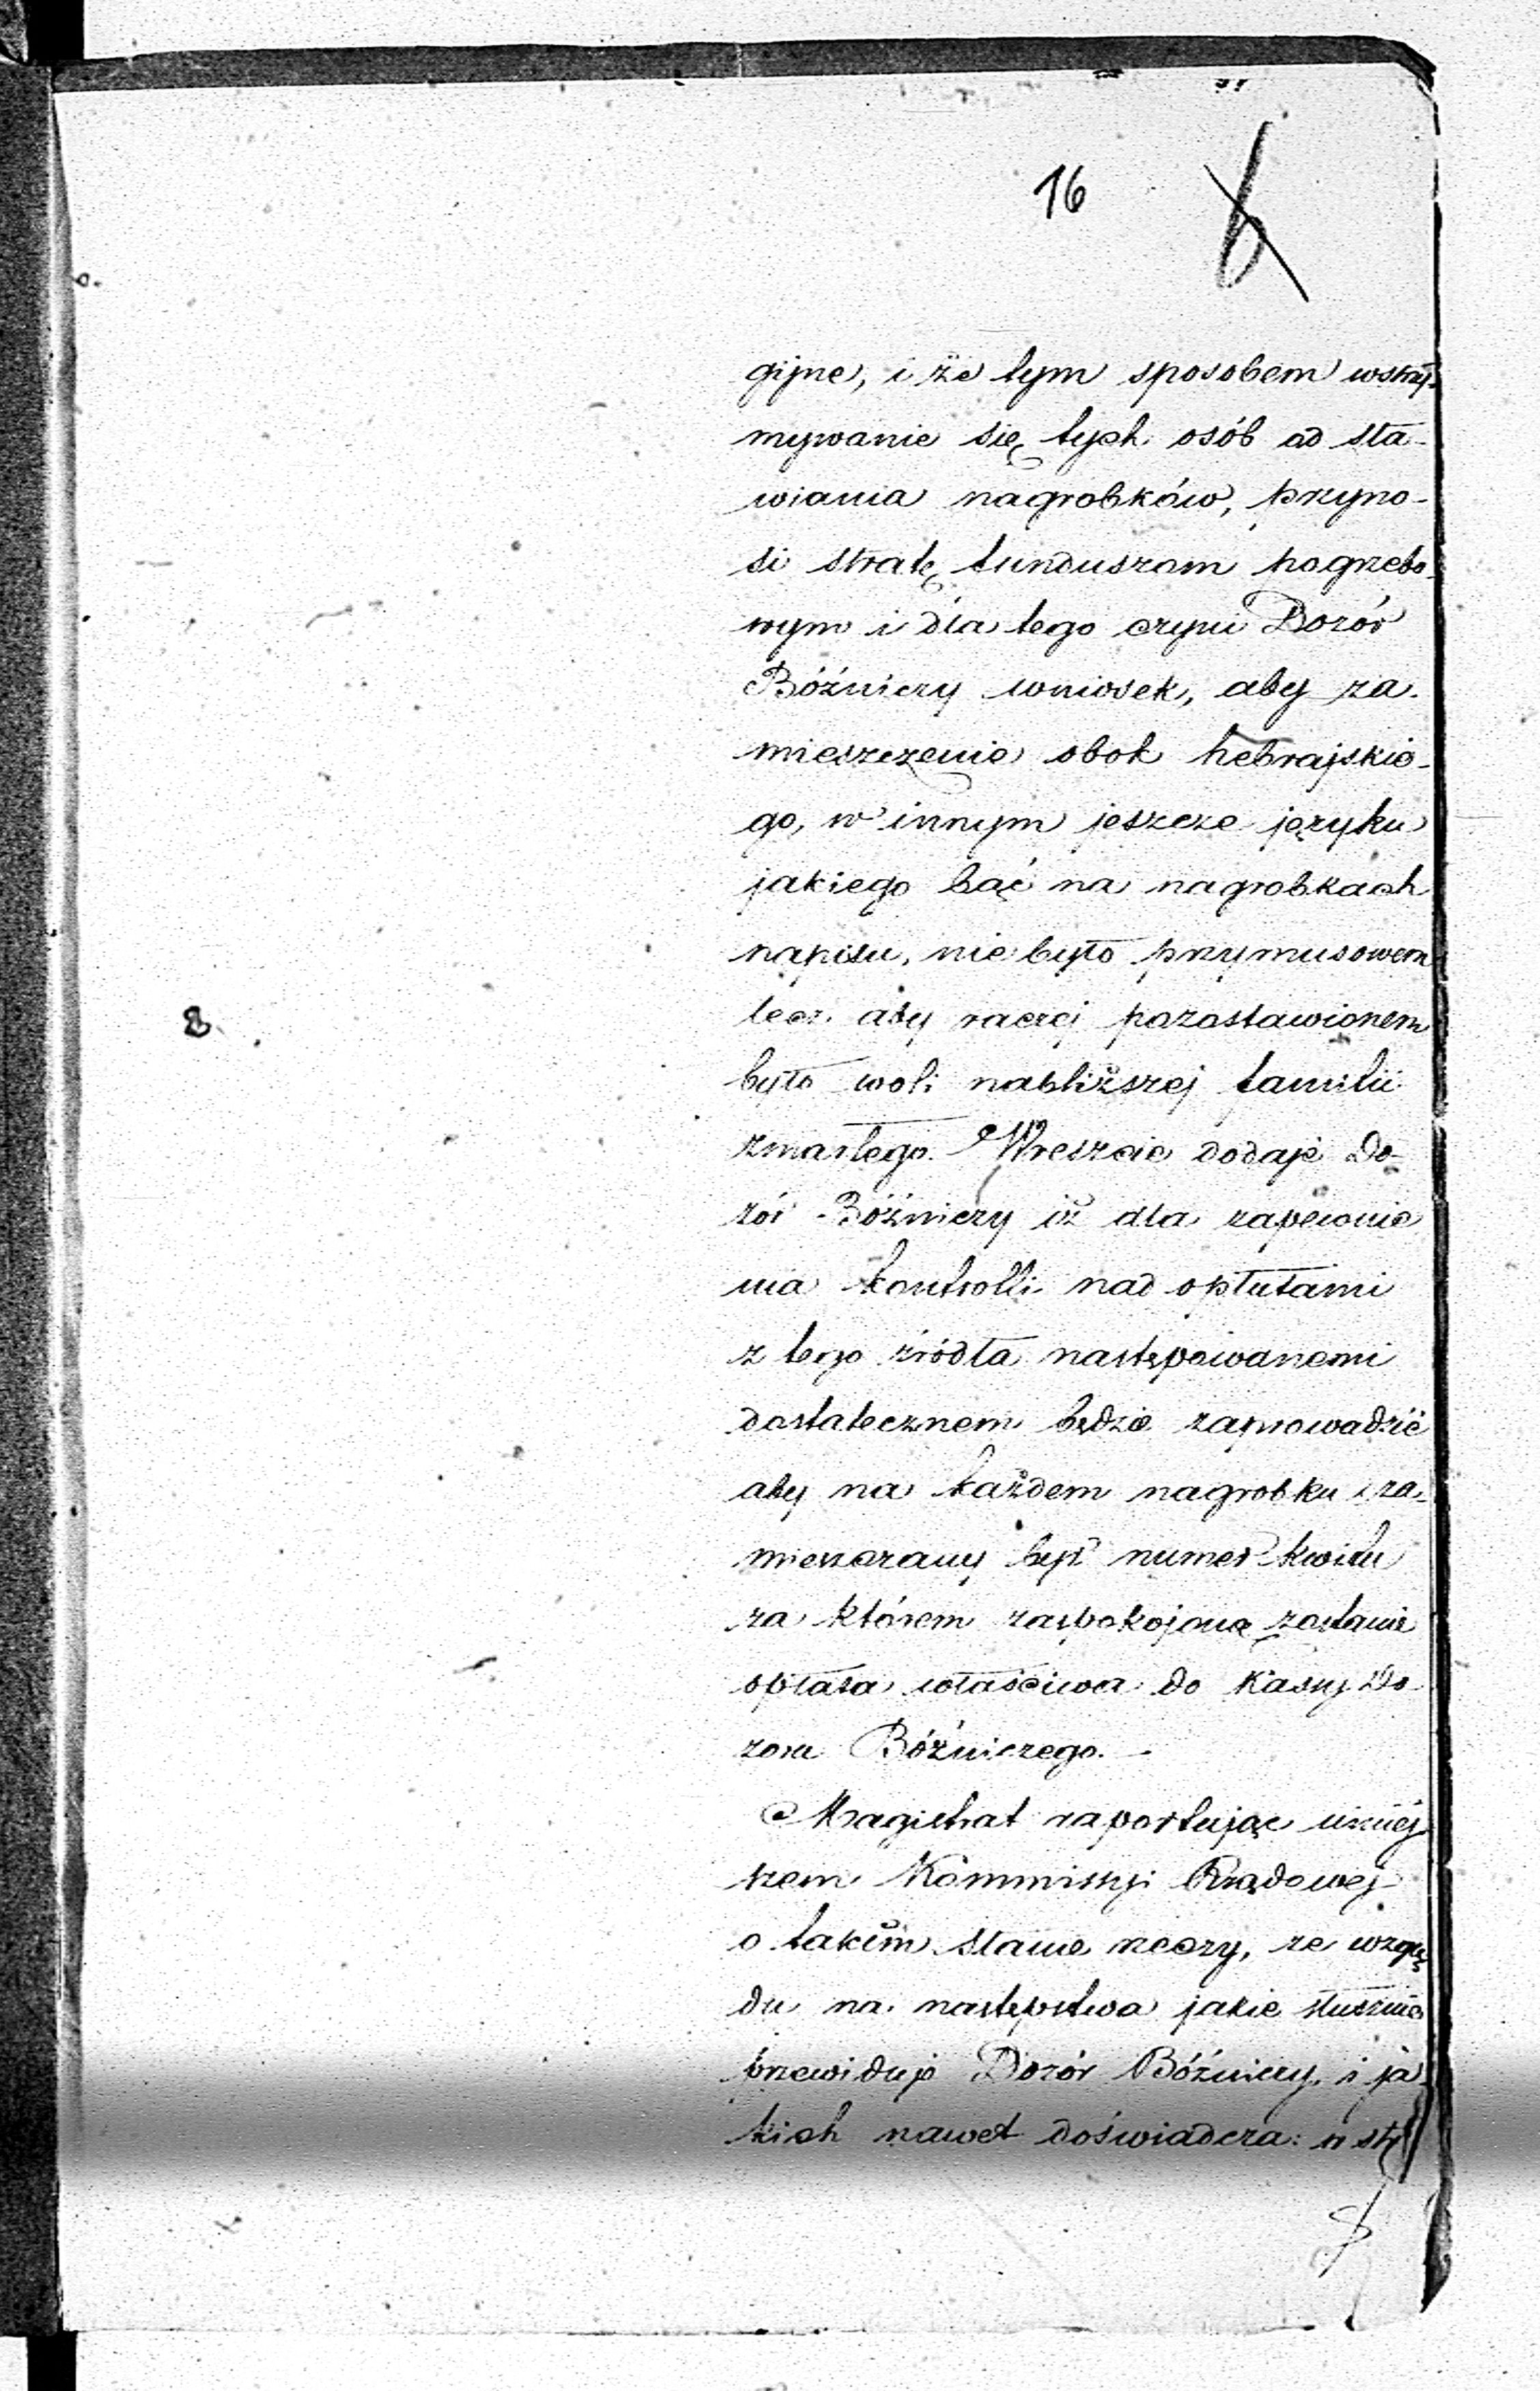 16 6
gijne, i że tym sposobem wstrzy-
mywanie się tych osób od sta-
wiania nagrobków, przyno-
si stratę funduszom pogrzebo-
wym i dla tego czyni Dozór
Bóźniczy wniosek, aby za-
mieszczenie obok hebrajskie-
go, w innym jeszcze języku
jakiego bąć na nagrobkach
napisu, nie było przymusowem
lecz aby raczej pozostawionem
było woli nabliższej familii
zmarłego. Wreszcie dodaje Do-
zór Bóźniczy iż dla zapewnie
nia kontrolli nad opłatami
z tego źródła następowanemi
dostatecznem będzie zaprowadzić
aby na każdem nagrobku za-
mieszczany był numer kwitu
za którem zaspokojona zostanie
opłata właściwa do Kassy Do-
zoru Bóźniczego.
Magistrat raportując niniej
szem Kommissyi Rządowej
o takim stanie rzeczy, ze wzglę
du na następstwa jakie słusznie
przewiduje Dozór Bóźniczy, i ja-
kich nawet doświadcza: